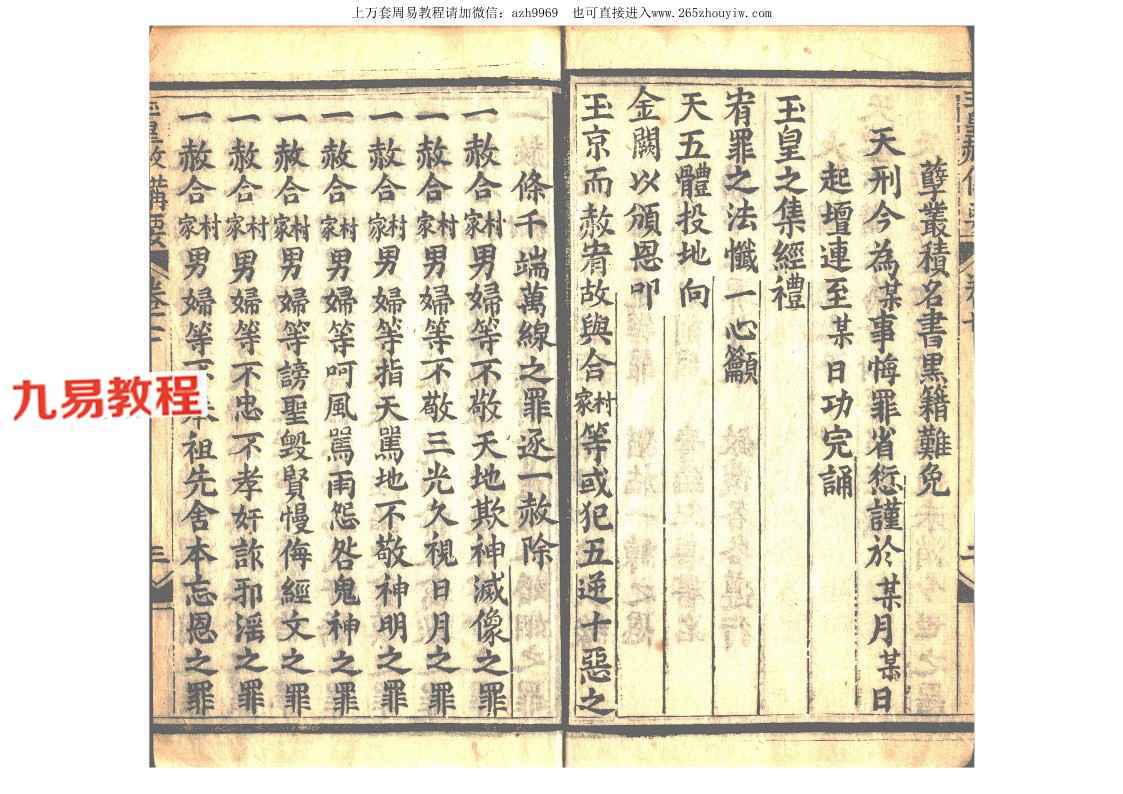 上万套周易教程请加微信：azh9969 也可直接进入www.265zhouyiw.com
孽叢積名書黑籍難免
天刑今為某事悔罪省愆謹於某月某日
起壇連至某日功完誦
玉皇之集經禮
宥罪之法懺一心籲
天五體投地向
金闕以頒恩叩
玉京而赦宥故與合村家等或犯五逆十惡之
條千端萬線之罪逐一赦除
一赦合村家男婦等不敬天地欺神滅像之罪
一赦合村家男婦等不敬三光久視日月之罪
一赦合村家男婦等指天罵地不敬神明之罪
一赦合村家男婦等呵風罵雨怨咎鬼神之罪
一赦合村家男婦等謗聖毀賢慢侮經文之罪
一赦合村家男婦等不忠不孝奸詐邪淫之罪
一赦合村家男婦等不祖先舍本忘恩之罪
九易教程